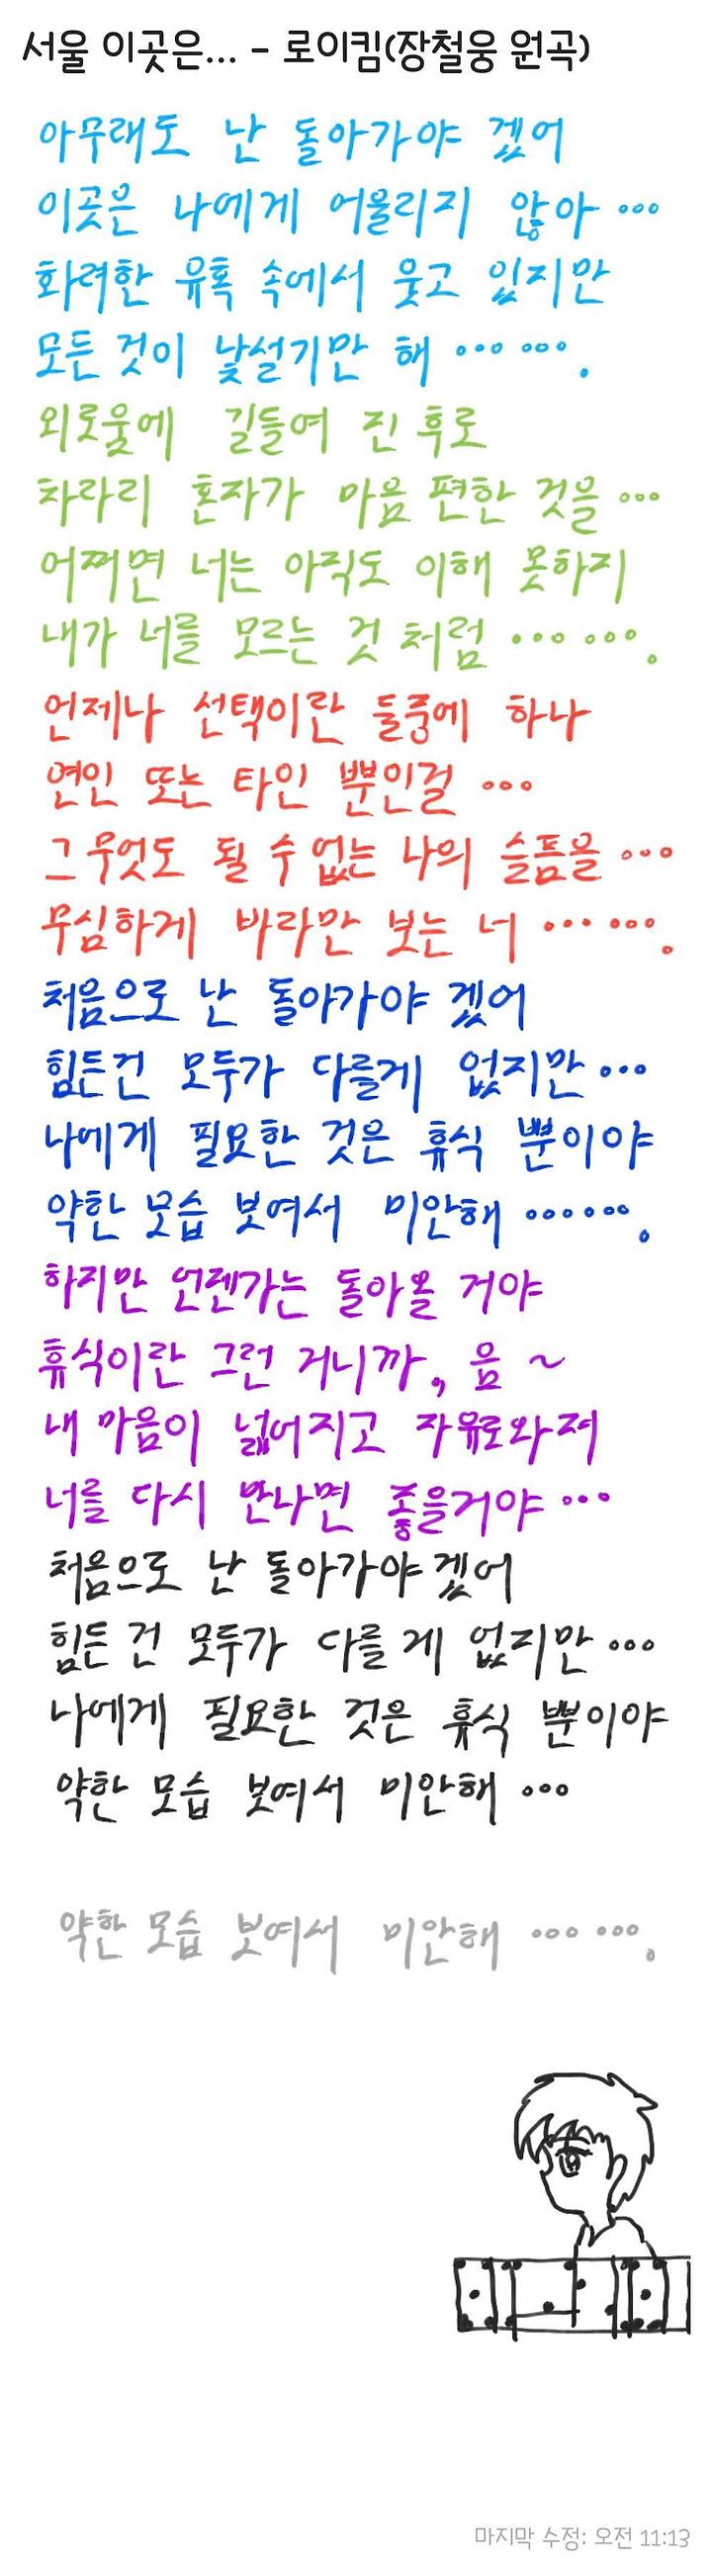 서울 이곳은... - 로이킴(장철웅 원곡)
아무래도 난 돌아가야 겠어
이곳은 나에게 어울리지 않아 ...
화려한 유혹 속에서 웃고 있지만
모든 것이 낯설기만 해 ... ... .
외로움에 길들여 진 후로
차라리 혼자가 마음 편한 것을 ...
어쩌면 너는 아직도 이해 못하지
내가 너를 모르는 것 처럼 ... ... .
언제나 선택이란 둘중에 하나
연인 또는 타인 뿐인걸 ...
그 무엇도 될 수 없는 나의 슬픔을 ...
무심하게 바라만 보는 너 ... ... .
처음으로 난 돌아가야 겠어
힘든건 모두가 다를게 없지만 ...
나에게 필요한 것은 휴식 뿐이야
약한 모습 보여서 미안해 ...... .
하지만 언젠가는 돌아올 거야
휴식이란 그런 거니까, 음 ~
내 마음이 넓어지고 자유로와져
너를 다시 만나면 좋을거야 ...
처음으로 난 돌아가야 겠어
힘든 건 모두가 다를 게 없지만 ...
나에게 필요한 것은 휴식 뿐이야
약한 모습 보여서 미안해 ...
약한 모습 보여서 미안해 ... ... .
마지막 수정: 오전 11:13